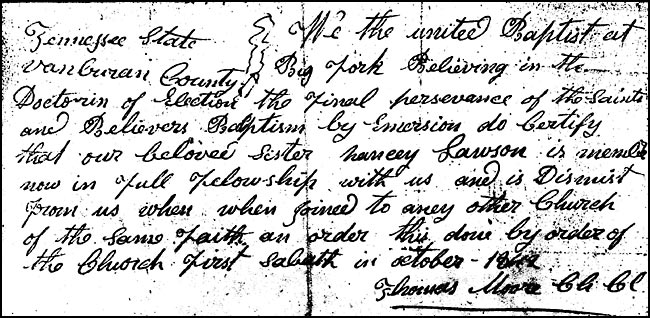 Tennessee State We the united Baptist at
Vanburan County Big Fork Believing in the
Doctorin of Election the Final persevance of the Saints
and Believers Babtism by Emersion do Certify
that our beloved Sister nancey Lawson is member
now in full Felowship with us and is Dismist
From us when when joined to aney other Church
of the Same Faith an order this done by order of
the Church First Sabath in october
Thomas Moore Ch Cl